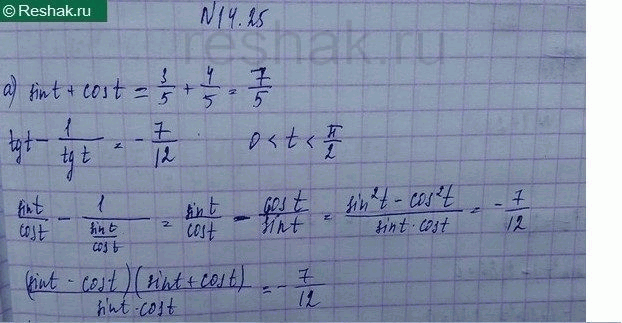 Reshak.ru
N14.25
reshak.ru
а) sint + cost = 3/5 + 4/5 = 7/5
tgt - 1/tgt = - 7/12 0 < t < π/2
sint/cost - 1/(sint/cost) = sint/cost - cost/sint = (sin²t - cos²t)/(sint·cost) = - 7/12
(sint - cost)(sint + cost)/(sint·cost) = - 7/12